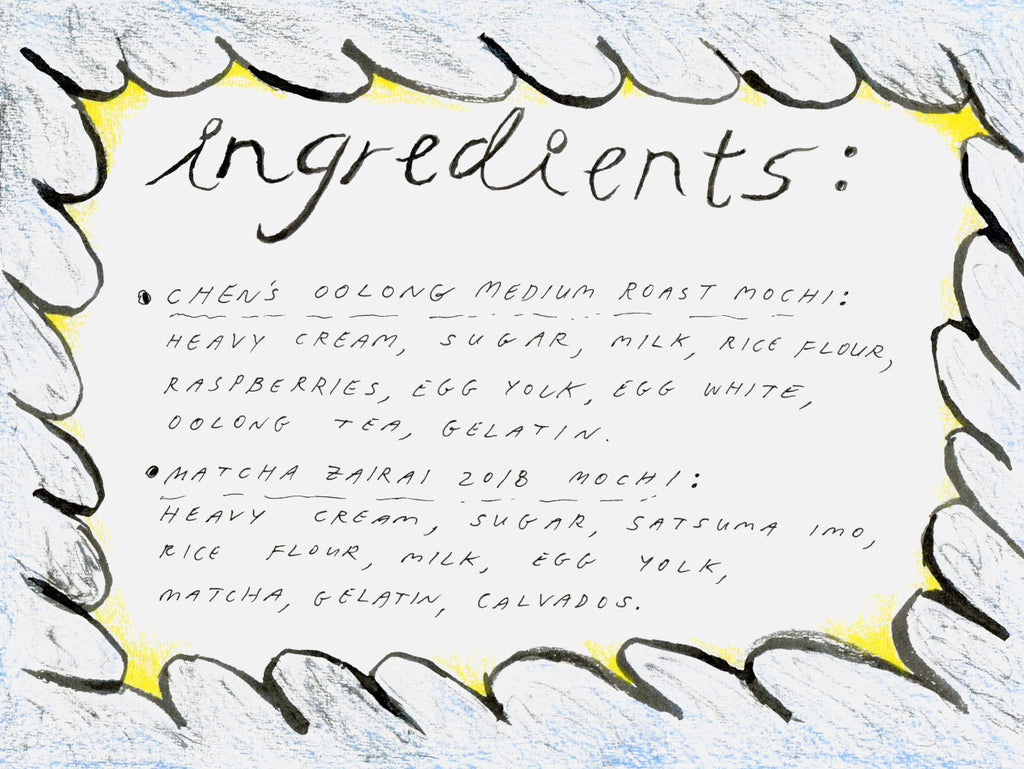 ingredients:
• CHEN'S OOLONG MEDIUM ROAST MOCHI:
HEAVY CREAM, SUGAR, MILK, RICE FLOUR,
RASPBERRIES, EGG YOLK, EGG WHITE,
OOLONG TEA, GELATIN.
• MATCHA ZAIRAI 2018 MOCHI:
HEAVY CREAM, SUGAR, SATSUMA IMO,
RICE FLOUR, MILK, EGG YOLK,
MATCHA, GELATIN, CALVADOS.